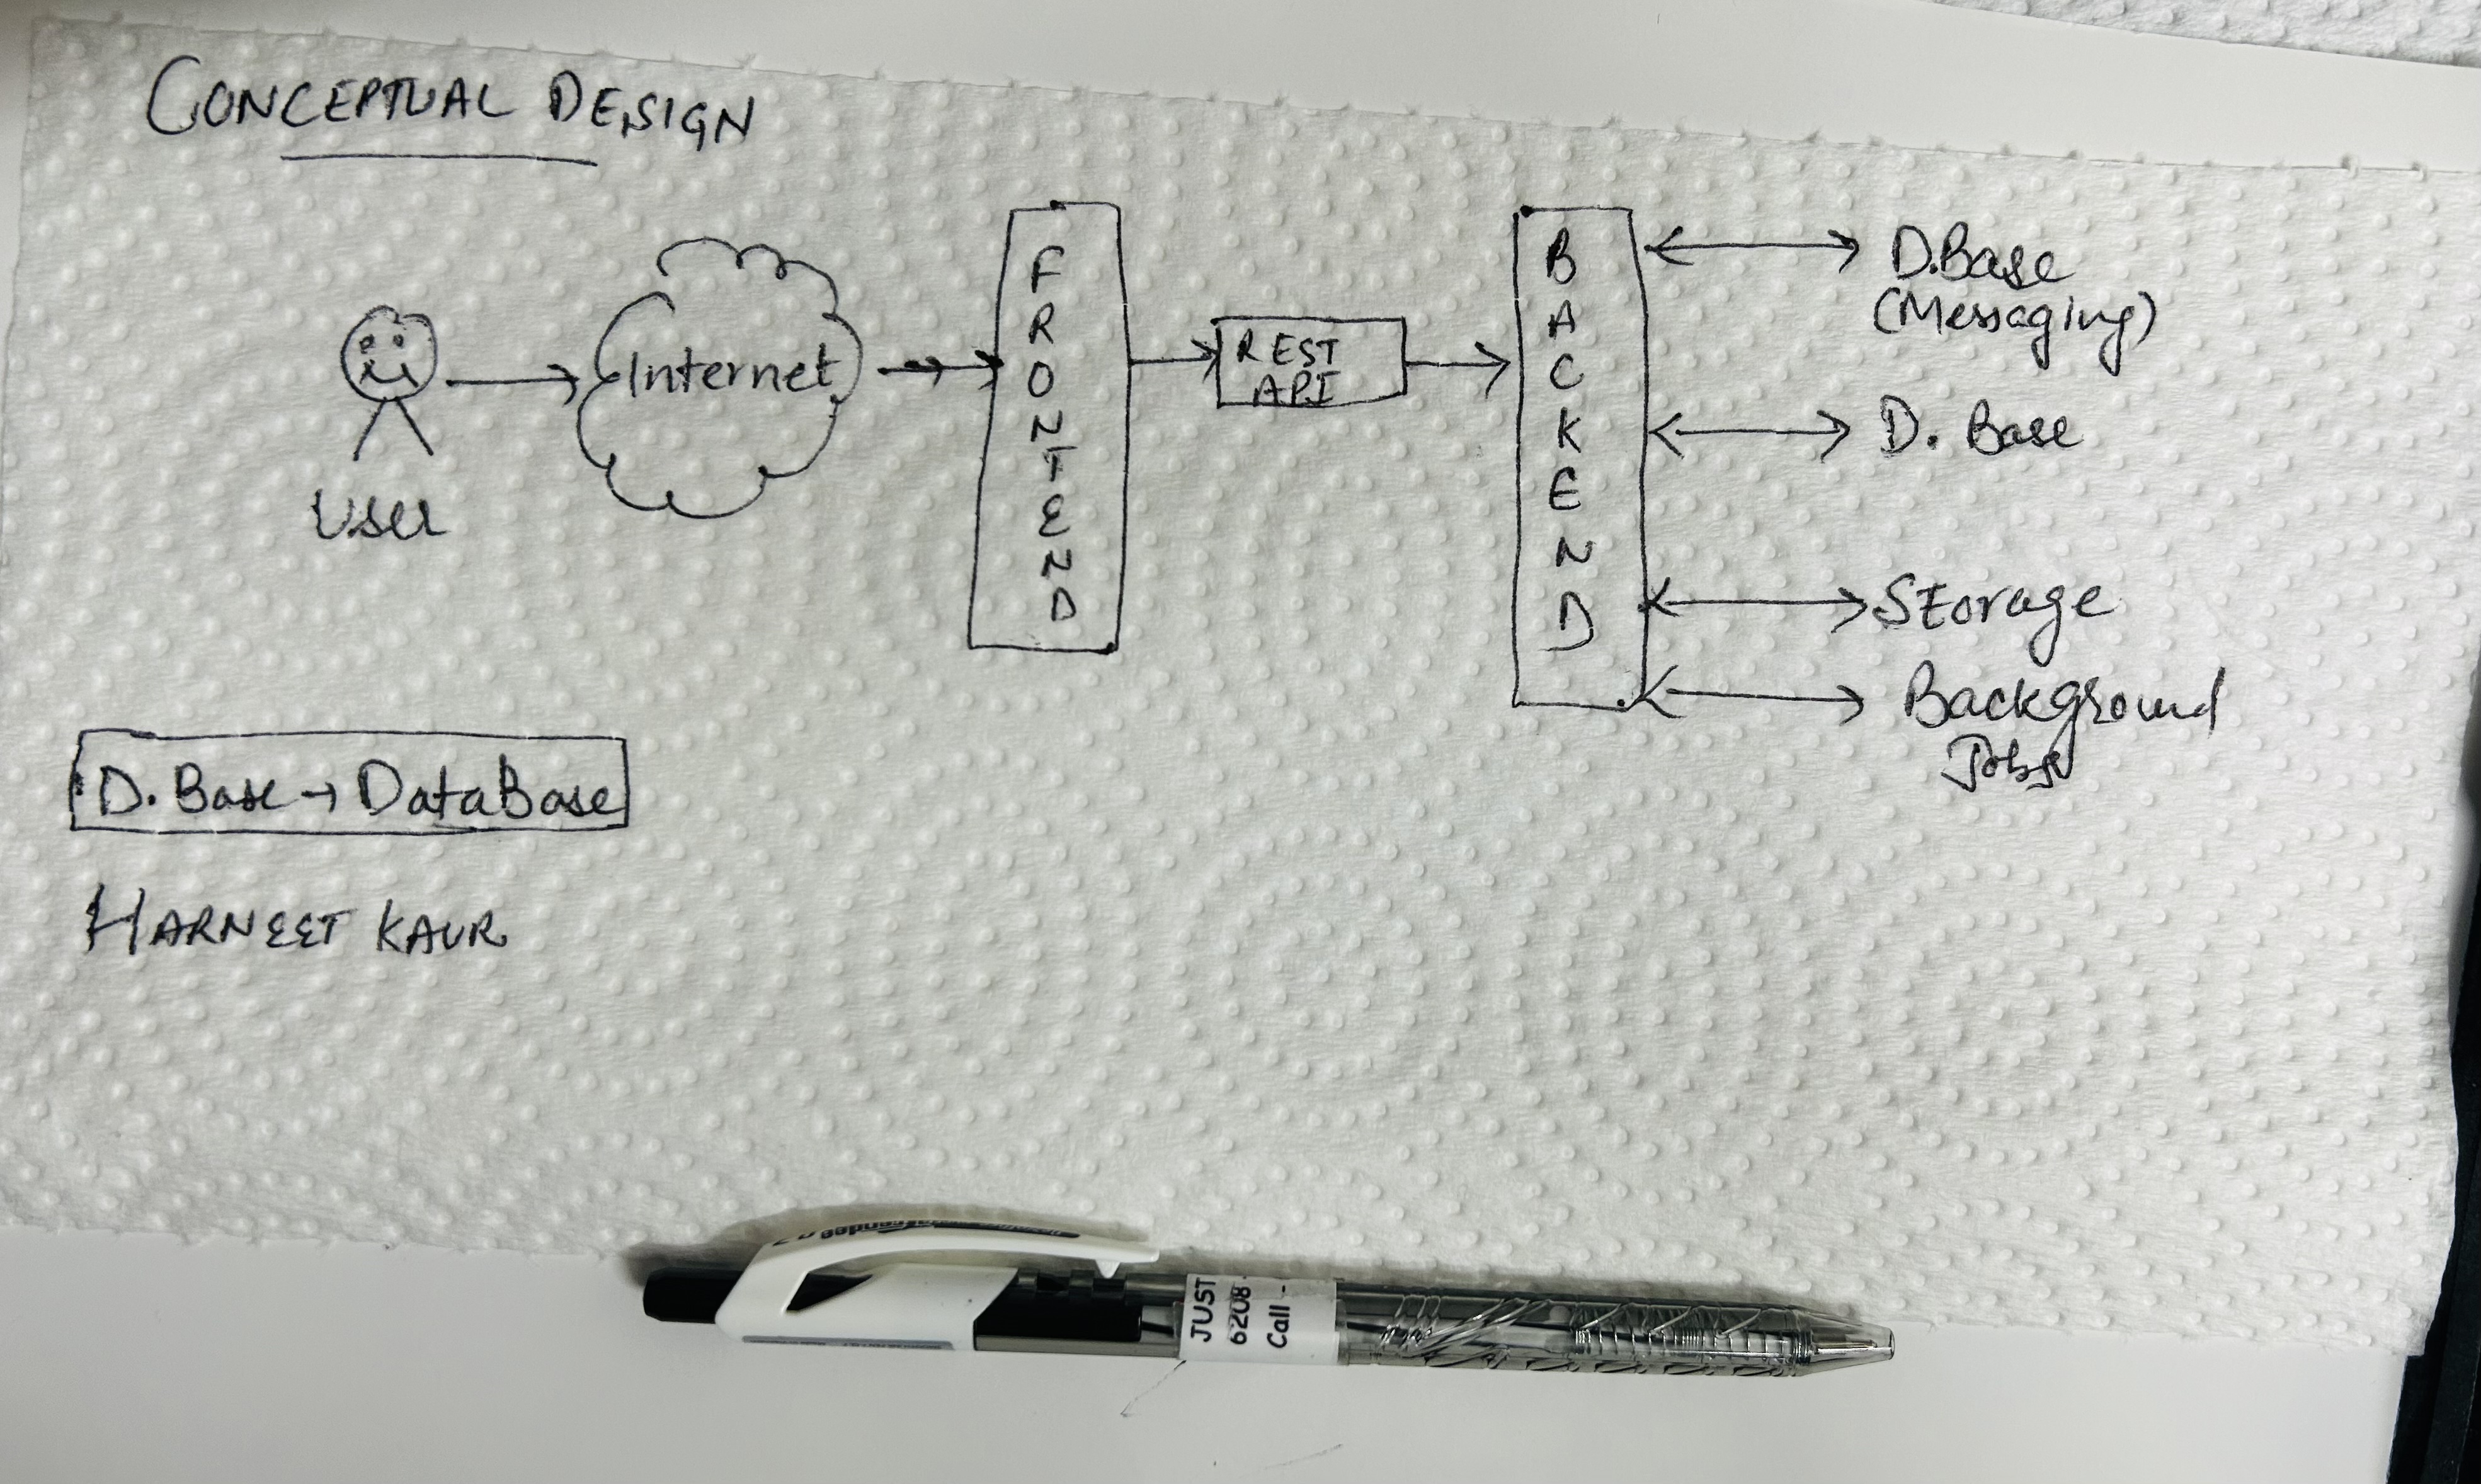 CONCEPTUAL DESIGN
USER
Internet
FRONTEND
REST
API
BACKEND
D.Base
(Messaging)
D. Base
Storage
Background
Jobs
D. Base → DataBase
HARNEET KAUR
JUST
6208
Call -